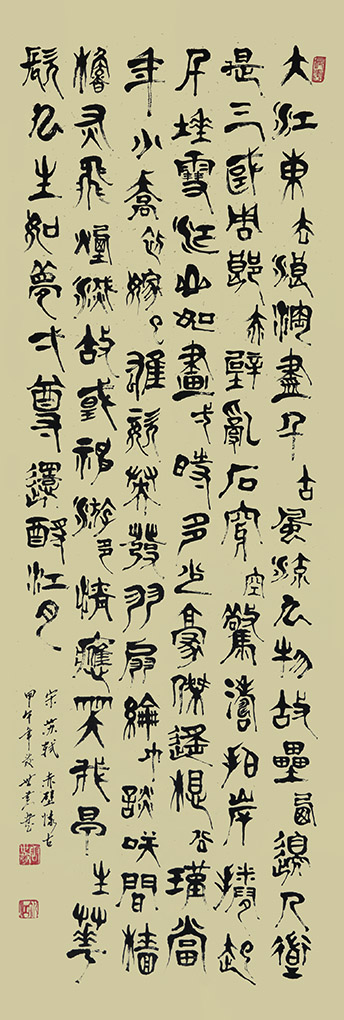 大江東去浪淘盡千古風流人物故壘西邊人道
是三國周郎赤壁亂石穿空驚濤拍岸捲起
千堆雪江山如畫一時多少豪傑遙想公瑾當
年小喬初嫁了雄姿英發羽扇綸巾談笑間檣
櫓灰飛煙滅故國神游多情應笑我早生華
髮人生如夢一尊還酹江月
宋苏軾赤壁懷古
甲午年